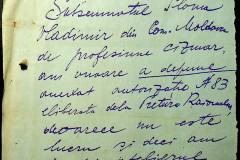 Subsemnatul Ilona
Vladimir din Com. Moldova
de profesiune cizmar,
am onoare a depune
anexat autorizația № 83
eliberată de la Pretura
deoarece nu este
lucru și deci am